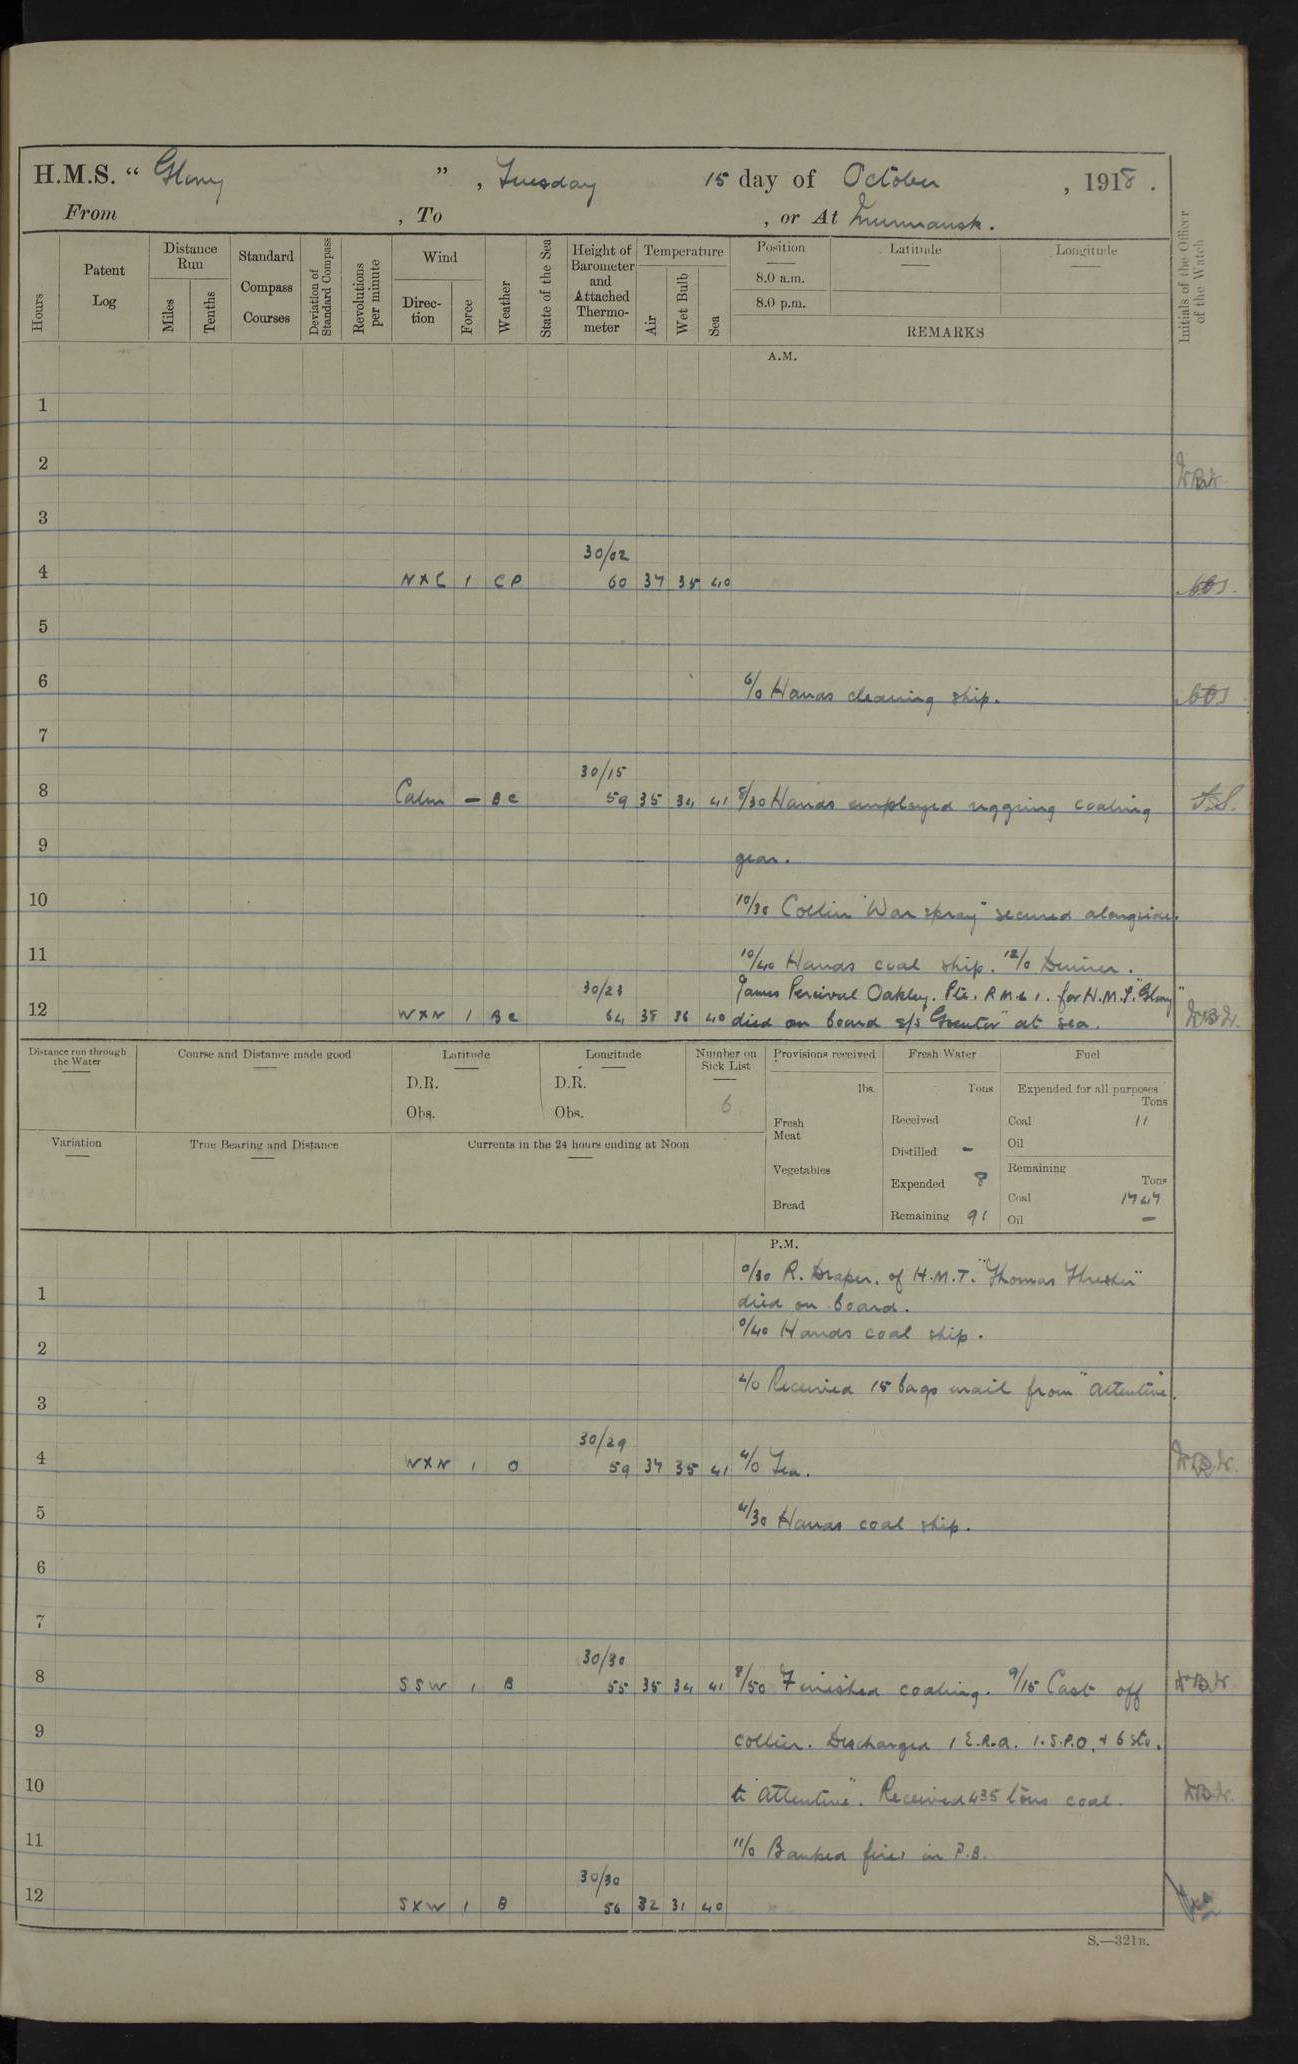 H.M.S. " Glory ", Tuesday 15 day of October, 1918.
From , To , or At Murmansk.
Hours
Patent Log
Distance Run
Miles
Tenths
Standard Compass Courses
Deviation of Standard Compass
Revolutions per minute
Wind
Direction
Force
Weather
State of the Sea
Height of Barometer and Attached Thermometer
Temperature
Air
Wet Bulb
Sea
Position
8.0 a.m.
8.0 p.m.
Latitude
Longitude
REMARKS
Initials of the Officer of the Watch
A.M.
1
2
3
30/02
4 NXE 1 CP 60 37 35 40
5
6 6/0 Hands cleaning ship.
7
30/15
8 Calm — BC 59 35 34 41 8/30 Hands employed rigging coaling
9 gear.
10 10/30 Collier "War Spray" secured alongside.
11 10/40 Hands coal ship. 12/0 Dinner.
30/23 James Percival Oakley. Pte. R.M.L.I. for H.M.S. "Glory"
12 WXN 1 BC 64 38 36 40 died on board s/s at sea.
Distance run through the Water
Course and Distance made good
Latitude
D.R.
Obs.
Longitude
D.R.
Obs.
Number on Sick List
6
Provisions received
lbs.
Fresh Meat
Vegetables
Bread
Fresh Water
Tons
Received
Distilled -
Expended 8
Remaining 91
Fuel
Expended for all purposes
Tons
Coal 11
Oil
Remaining
Tons
Coal 1747
Oil —
Variation
True Bearing and Distance
Currents in the 24 hours ending at Noon
P.M.
0/30 R. Draper. of H.M.T. "Thomas
1 died on board.
0/40 Hands coal ship.
2
2/0 Received 15 bags mail from "Attentive".
3
30/29
4 WXN 1 O 59 37 35 41 4/0 Tea.
5 4/30 Hands coal ship.
6
7
30/30
8 SSW 1 B 55 35 34 41 8/50 Finished coaling. 9/15 Cast off
9 collier. Discharged 1 E.R.A. 1. S.P.O. + 6 Sto.
10 to "Attentive". Received 435 tons coal.
11 11/0 Banked fires in P.B.
30/30
12 SXW 1 B 56 32 31 40
S.—321B.